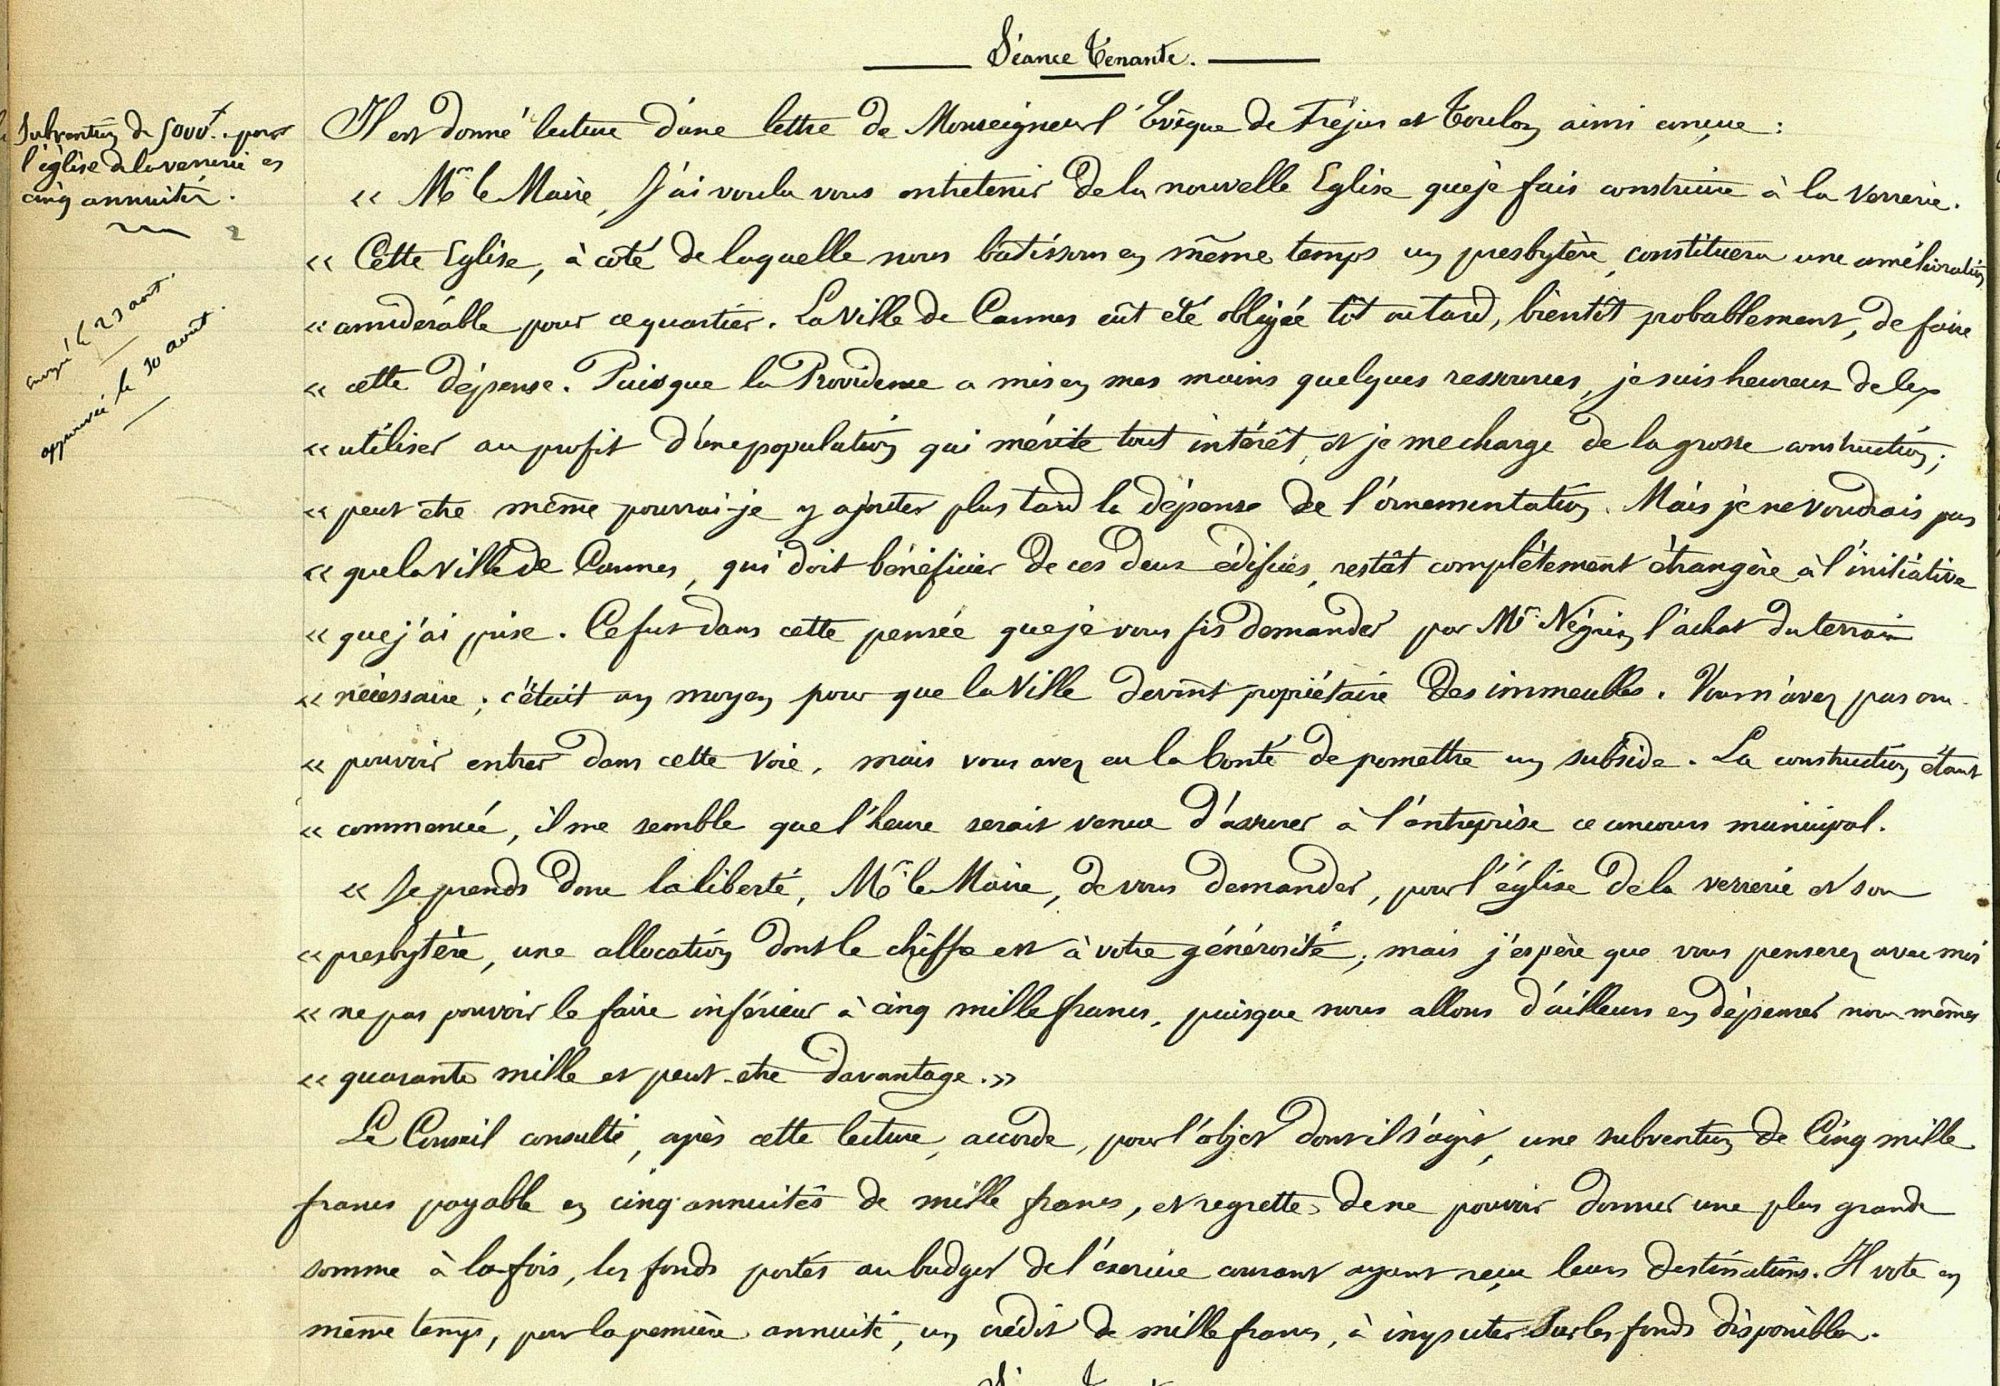 Séance Tenante.
Subvention de 5000f. pour
l'église de la verrerie en
cinq annuités.
envoyé le 23 aout.
approuvée le 30 août.
Il est donné lecture d'une lettre de Monseigneur l'Evêque de Fréjus et Toulon ainsi conçue :
« Mr. le Maire, J'ai voulu vous entretenir de la nouvelle Eglise que je fais construire à la Verrerie.
« Cette Eglise, à côté de laquelle nous bâtissons en même temps un presbytère, constituera une amélioration
« considérable pour ce quartier. La Ville de Cannes eût été obligée tôt ou tard, bientôt probablement, de faire
« cette dépense. Puisque la Providence a mis en mes mains quelques ressources, je suis heureux de les
« utiliser au profit d'une population qui mérite tout intérêt, et je me charge de la grosse construction;
« peut etre même pourrai-je y ajouter plus tard la dépense de l'ornementation. Mais je ne voudrais pas
« que la Ville de Cannes, qui doit bénéficier de ces deux édifices, restât complètement étrangère à l'initiative
« que j'ai prise. Ce fut dans cette pensée que je vous fis demander par Mr. Négrin l'achat du terrain
« nécessaire ; c'était un moyen pour que la Ville devint propriétaire des immeubles. Vous n'avez pas cru
« pouvoir entrer dans cette voie, mais vous avez eu la bonté de promettre un subside. La construction étant
« commencée, il me semble que l'heure serait venue d'assurer à l'entreprise ce concours municipal.
« Je prends donc la liberté, Mr. le Maire, de vous demander, pour l'église de la verrerie et son
« presbytère, une allocation dont le chiffre est à votre générosité ; mais j'espère que vous penserez avec moi
« ne pas pouvoir le faire inférieur à cinq mille francs, puisque nous allons d'ailleurs en dépenser nous-mêmes
« quarante mille et peut-etre davantage. »
Le Conseil consulté, après cette lecture, accorde, pour l'objet dont il s'agit, une subvention de Cinq mille
francs payable en cinq annuités de mille francs, et regrette de ne pouvoir donner une plus grande
somme à la fois, les fonds portés au budget de l'exercice courant ayant reçu leurs destinations. Il vote en
même temps, pour la première annuité, un crédit de mille francs, à imputer sur les fonds disponibles.